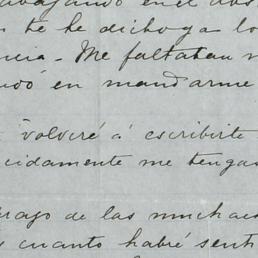 abajando en el abs
te he dicho ya lo
ncia. Me faltaban
en mandarme
volveré á escribirte
cidamente me tengas
de las muchas
cuanto habré sent